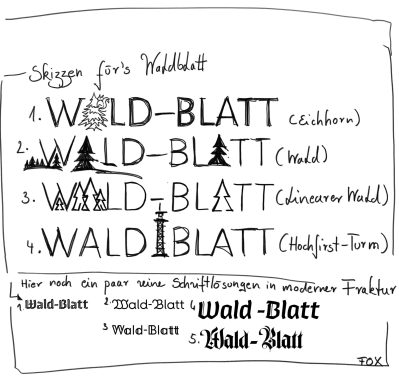 Skizzen für's Waldblatt
1. WALD-BLATT (Eichhorn)
2. WALD-BLATT (Wald)
3. WALD-BLATT (Linearer Wald)
4. WALD BLATT (Hochfirst-Turm)
Hier noch ein paar reine Schriftlösungen in moderner Fraktur
1. Wald-Blatt 2. Wald-Blatt 4. Wald-Blatt
3. Wald-Blatt 5. Wald-Blatt
FOX